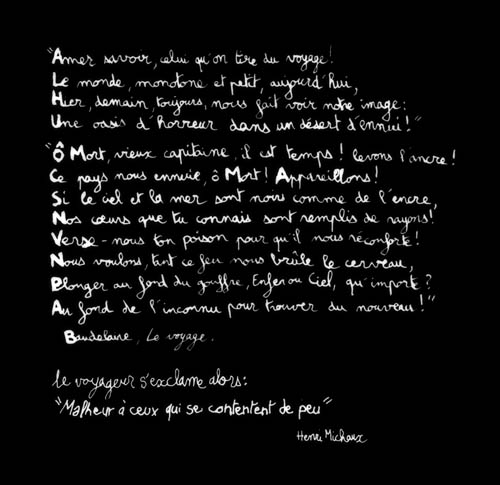 "Amer savoir, celui qu'on tire du voyage!
Le monde, monotone et petit, aujourd'hui,
Hier, demain, toujours, nous fait voir notre image:
Une oasis d'horreur dans un désert d'ennui!"
"Ô Mort, vieux capitaine, il est temps! levons l'ancre!
Ce pays nous ennuie, ô Mort! Appareillons!
Si le ciel et la mer sont noirs comme de l'encre,
Nos cœurs que tu connais sont remplis de rayons!
Verse-nous ton poison pour qu'il nous réconforte!
Nous voulons, tant ce feu nous brûle le cerveau,
Plonger au fond du gouffre, Enfer ou Ciel, qu'importe?
Au fond de l'inconnu pour trouver du nouveau!"
Baudelaire, Le voyage.
Le voyageur s'exclame alors:
"Malheur à ceux qui se contentent de peu"
Henri Michaux